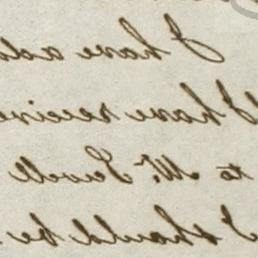 I have
I have receive
to Mr. Sewell
I should be